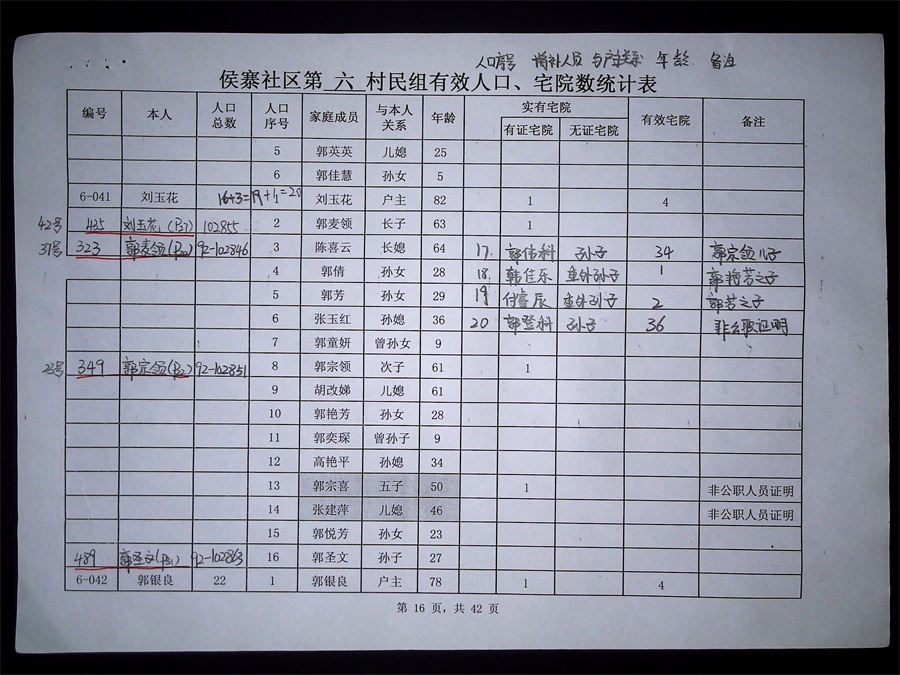 人口序号 增补人员 与户主关系 年龄 备注
侯寨社区第 六 村民组有效人口、宅院数统计表
编号 本人 人口总数 人口序号 家庭成员 与本人关系 年龄 实有宅院 有效宅院 备注
有证宅院 无证宅院
5 郭英英 儿媳 25
6 郭佳慧 孙女 5
6-041 刘玉花 16+3=19+1=20 刘玉花 户主 82 1 4
42号 435 刘玉花 102855 2 郭麦领 长子 63 1
37号 323 郭麦领 92-102846 3 陈喜云 长媳 64 17. 郭伟科 孙子 34 郭宗领儿子
4 郭倩 孙女 28 18. 韩佳乐 重外孙子 1 之子
5 郭芳 孙女 29 19 付睿辰 重外孙子 2 郭芳之子
6 张玉红 孙媳 36 20 郭登科 孙子 36 非公职证明
7 郭童妍 曾孙女 9
23号 349 郭宗领 92-102851 8 郭宗领 次子 61 1
9 胡改娣 儿媳 61
10 郭艳芳 孙女 28
11 郭奕琛 曾孙子 9
12 高艳平 孙媳 34
13 郭宗喜 五子 50 1 非公职人员证明
14 张建萍 儿媳 46 非公职人员证明
15 郭悦芳 孙女 23
489 郭圣文 92-102863 16 郭圣文 孙子 27
6-042 郭银良 22 1 郭银良 户主 78 1 4
第 16 页，共 42 页